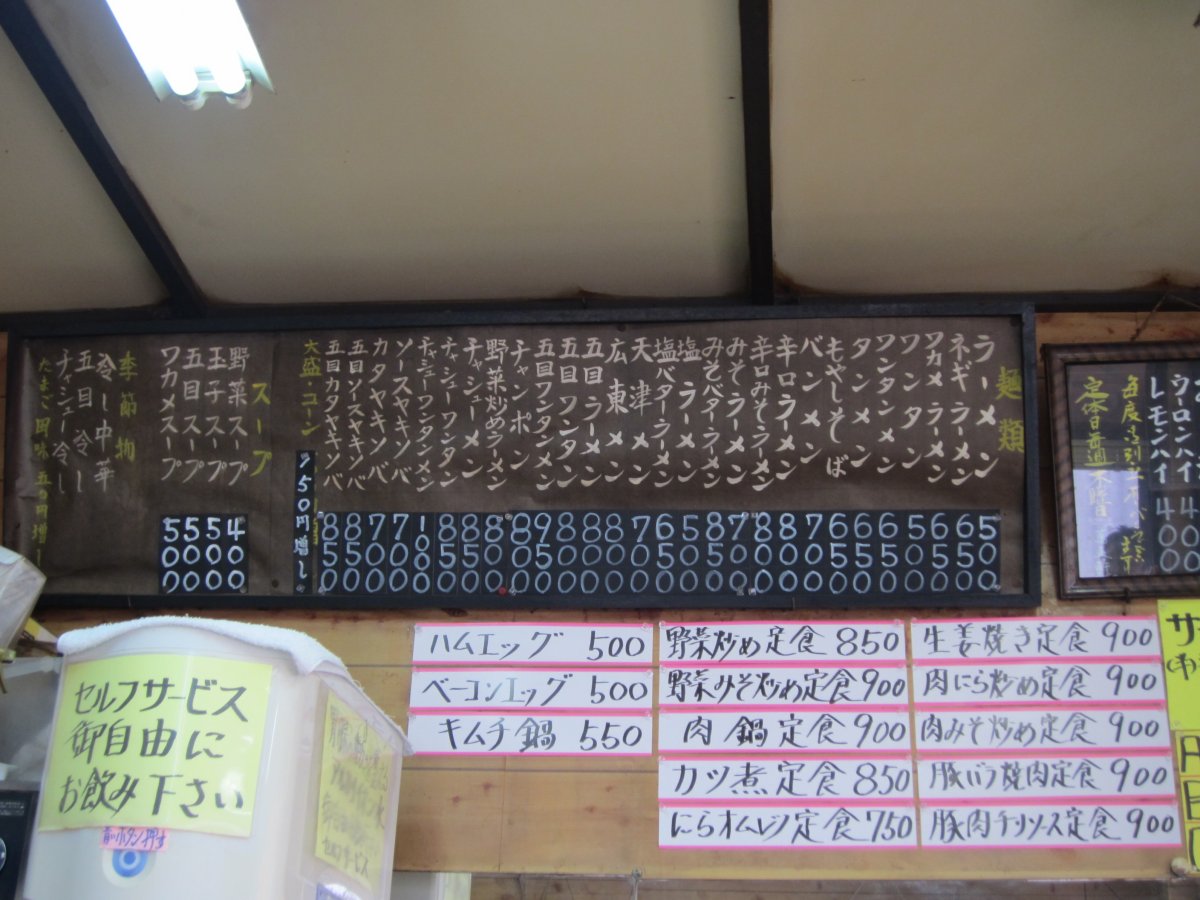 麺類
ラーメン 500
ネギラーメン 650
ワカメラーメン 650
ワンタン 500
ワンタンメン 650
タンメン 650
もやしそば 650
バンメン 700
辛口ラーメン 800
辛口みそラーメン 800
みそラーメン 750
みそバターラーメン 800
塩ラーメン 550
塩バターラーメン 650
天津メン 700
広東メン 800
五目ラーメン 800
五目ワンタン 800
五目ワンタンメン 950
チャンポン 800
野菜炒めラーメン 800
チャシューメン 850
チャシューワンタン 850
チャシューワンタンメン 1000
ソースヤキソバ 700
カタヤキソバ 700
五目ソースヤキソバ 850
五目カタヤキソバ 850
大盛・コーン 150円増し
スープ
野菜スープ 400
玉子スープ 500
五目スープ 500
ワカメスープ 500
季節物
冷し中華
五目冷し
チャシュー冷し
ウーロンハイ 400
レモンハイ 400
ハムエッグ 500
ベーコンエッグ 500
キムチ鍋 550
野菜炒め定食 850
野菜みそ炒め定食 900
肉鍋定食 900
カツ煮定食 850
にらオムレツ定食 750
生姜焼き定食 900
肉にら炒め定食 900
肉みそ炒め定食 900
豚バラ焼肉定食 900
豚肉チリソース定食 900
セルフサービス
御自由に
お飲み下さい
セルフサービス